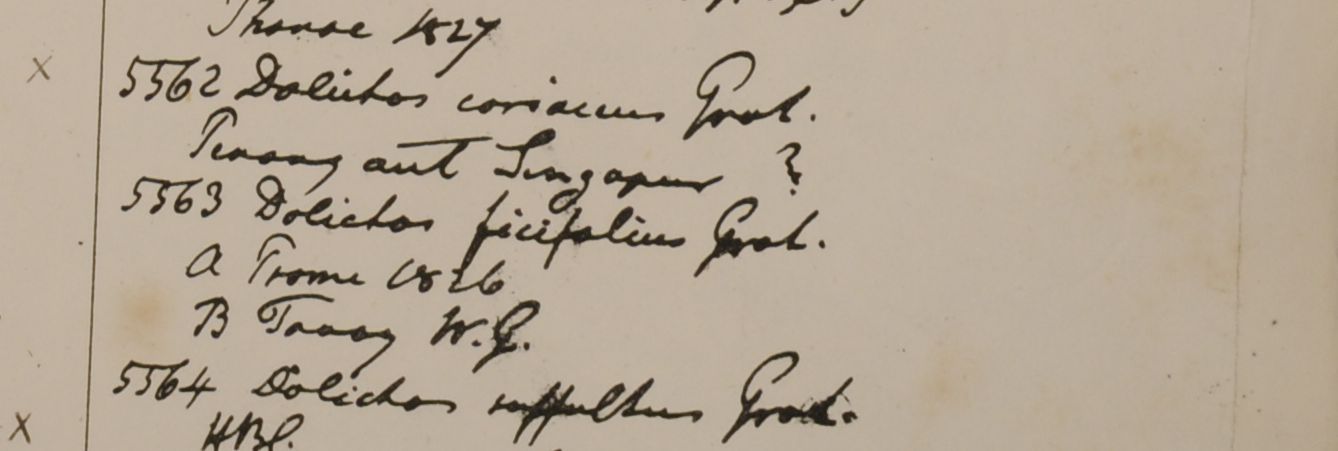 Thanae 1827
x 5562 Dolichos coriaceus Grah.
Penang aut Singapur ?
5563 Dolichos ficifolius Grah.
A Prome 1826
B Tavoy W.G.
5564 Dolichos suffultus Grah.
x HBC.